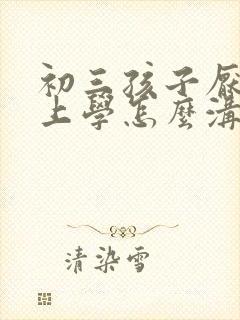 初三孩子厭
上學怎麼溝
清染雪